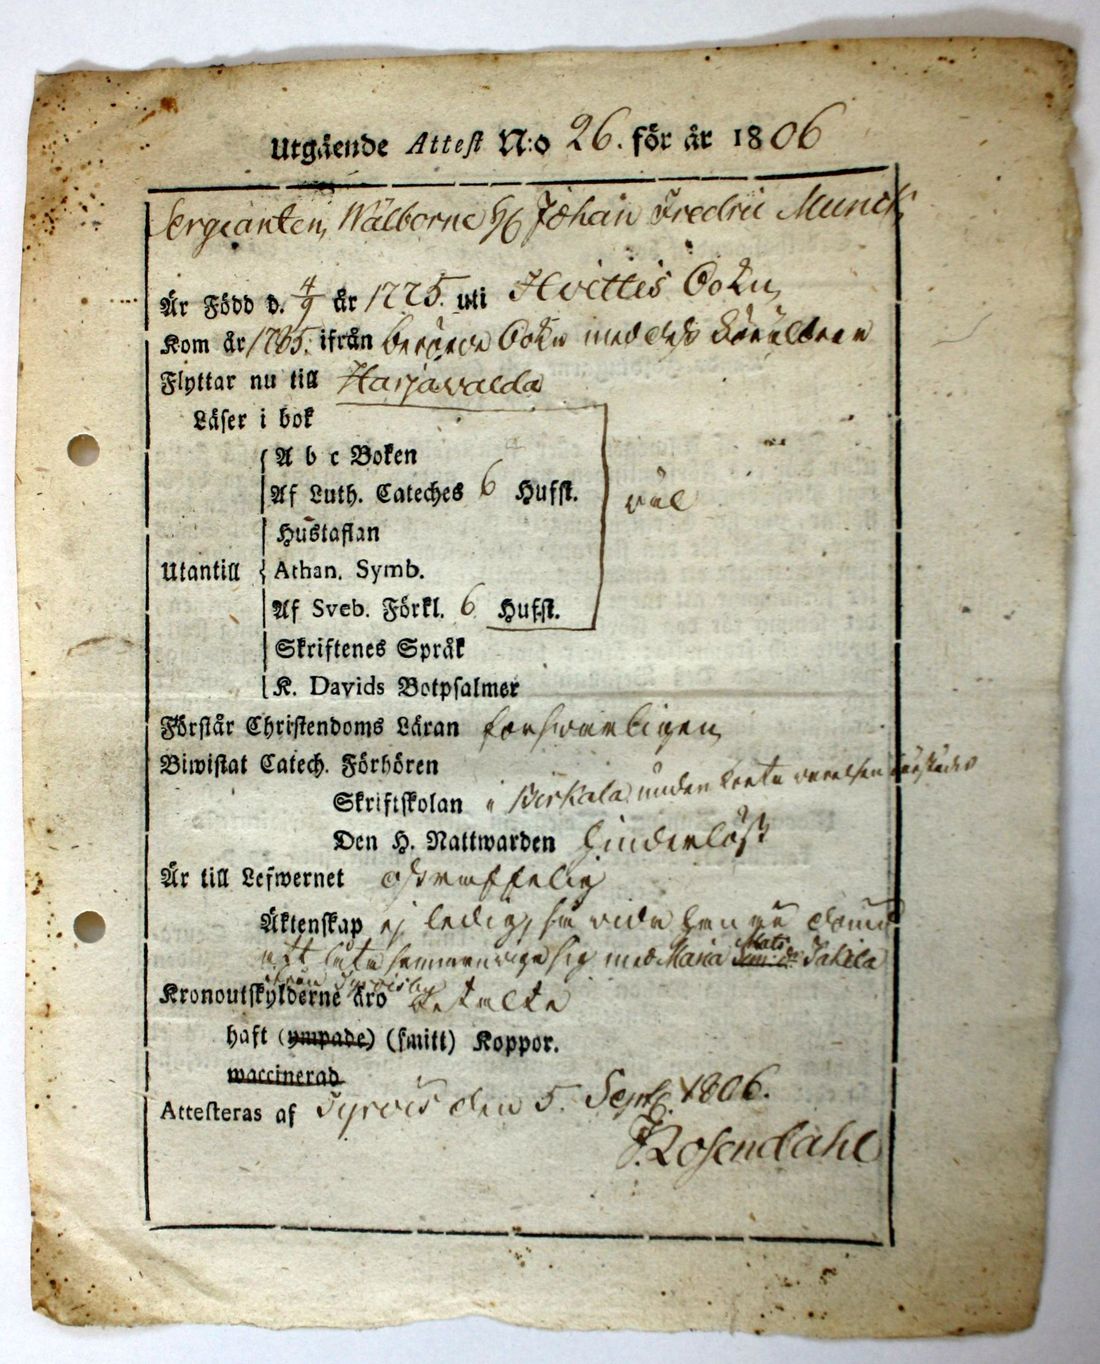 Utgående Attest N:o 26. för år 1806
Sergeanten, Wälborne H Johan Fredric Munck
Är Född d. 4/9 år 1775. uti Hvittis Sokn,
Kom år 1785. ifrån berörde Sokn med dess Föräldrar
Flyttar nu till Harjavalda
Läser i bok
A b c Boken
Af Luth. Cateches 6 Hufst.
väl
Hustaflan
Utantill Athan. Symb.
Af Sveb. Förkl. 6 Hufst.
Skriftenes Språk
K. Davids Botpsalmer
Förstår Christendoms Läran försvarligen,
Biwistat Catech. Förhören
Skriftskolan i Birkala under
Den H. Nattwarden hinderlöst
Är till Lefwernet ostraffelig
Äktenskap ej ledig, han
med Maria Mats Dr Jakila
ifrån
Kronoutskylderne äro betalte
haft (ympade) (smitt) Koppor.
waccinerad
Attesteras af Tyrvis den 5. Sept. 1806.
J. Rosendahl